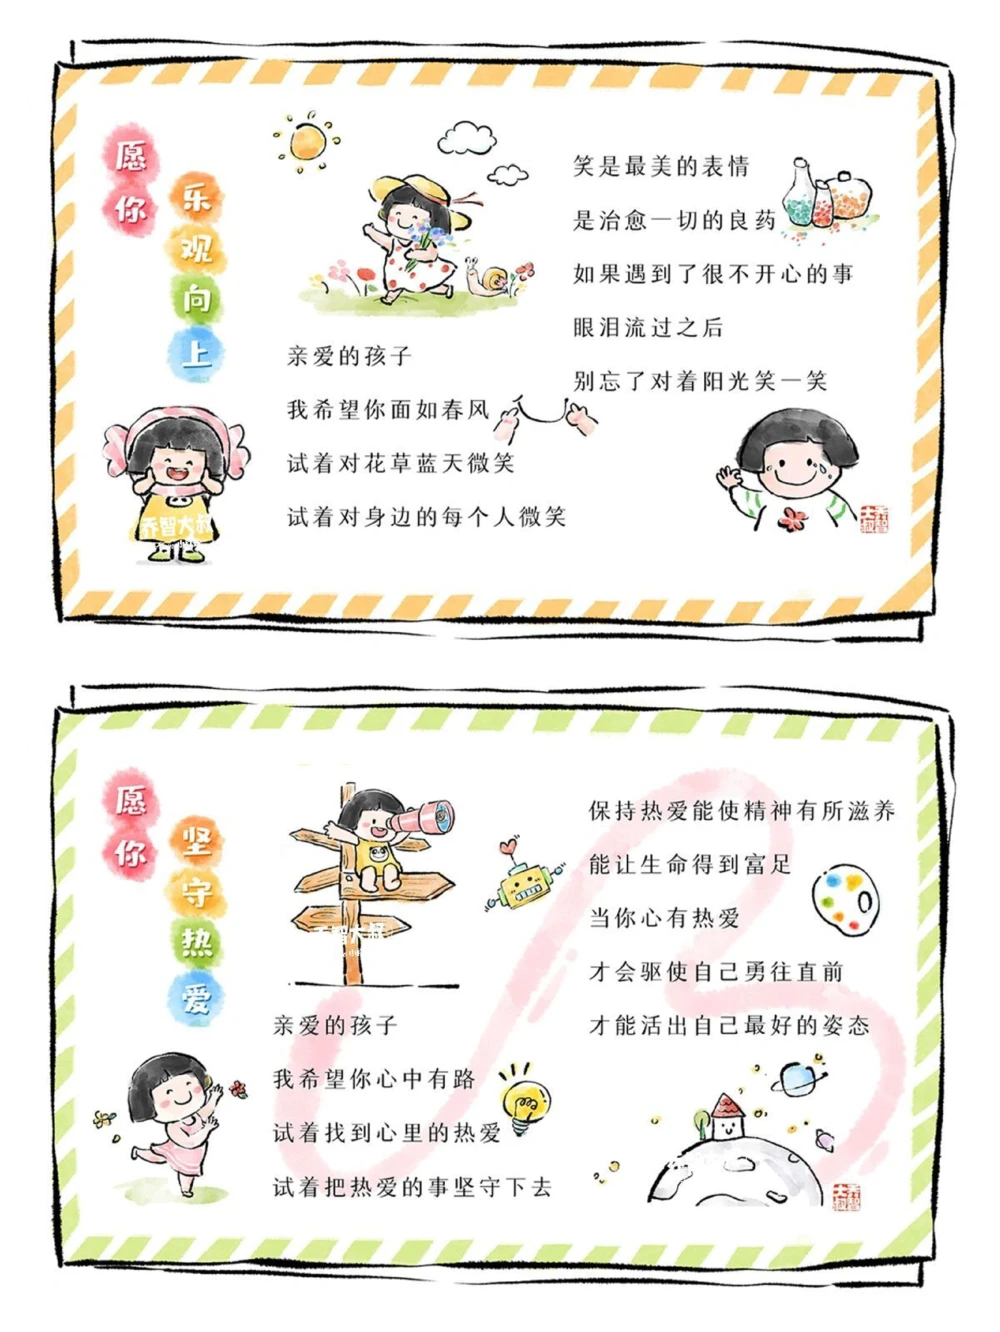 愿你
乐观向上
亲爱的孩子
我希望你面如春风
试着对花草蓝天微笑
试着对身边的每个人微笑
笑是最美的表情
是治愈一切的良药
如果遇到了很不开心的事
眼泪流过之后
别忘了对着阳光笑一笑
乔智大叔
乔智大叔
愿你
坚守热爱
亲爱的孩子
我希望你心中有路
试着找到心里的热爱
试着把热爱的事坚守下去
保持热爱能使精神有所滋养
能让生命得到富足
当你心有热爱
才会驱使自己勇往直前
才能活出自己最好的姿态
乔智大叔
乔智大叔